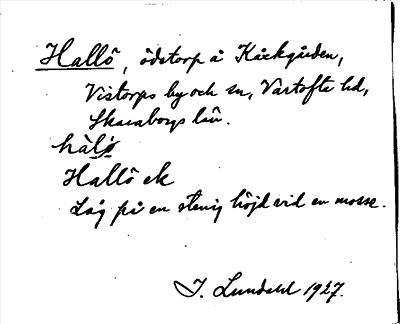 Hallö, ödetorp å Kåckgården,
Vistorps by och sn, Vartofta hd,
Skaraborgs län.
hàlö
Hallö ek
Låg på en stenig höjd vid en mosse.
I. Lundahl 1927.